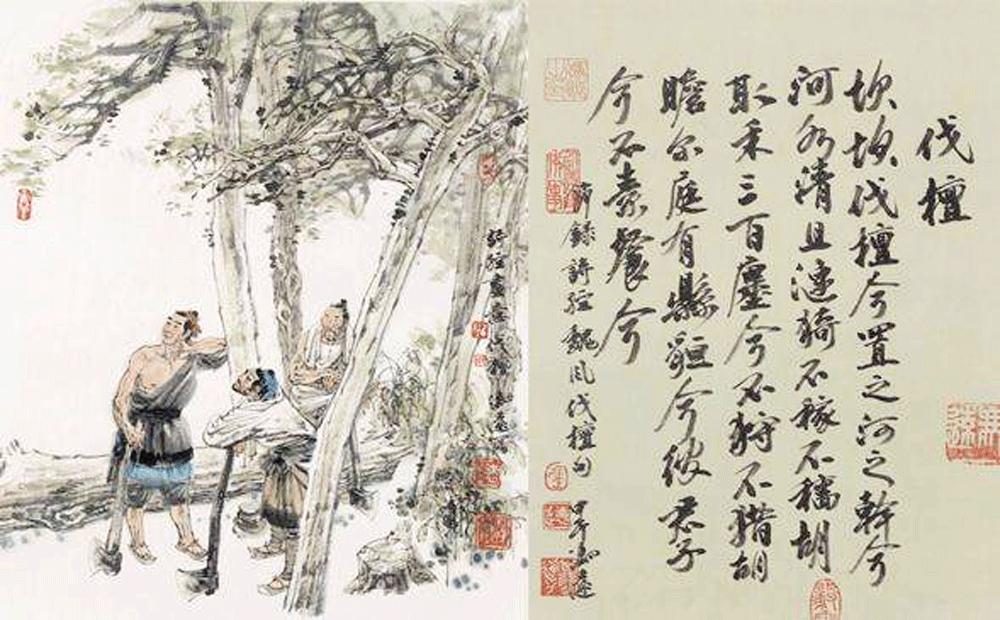 伐檀
坎坎伐檀兮置之河之幹兮
河水清且漣猗不稼不穡胡
取禾三百廛兮不狩不獵胡
瞻尔庭有縣貆兮彼君子
兮不素餐兮
節錄詩經魏風伐檀句
詩經畫意伐檀